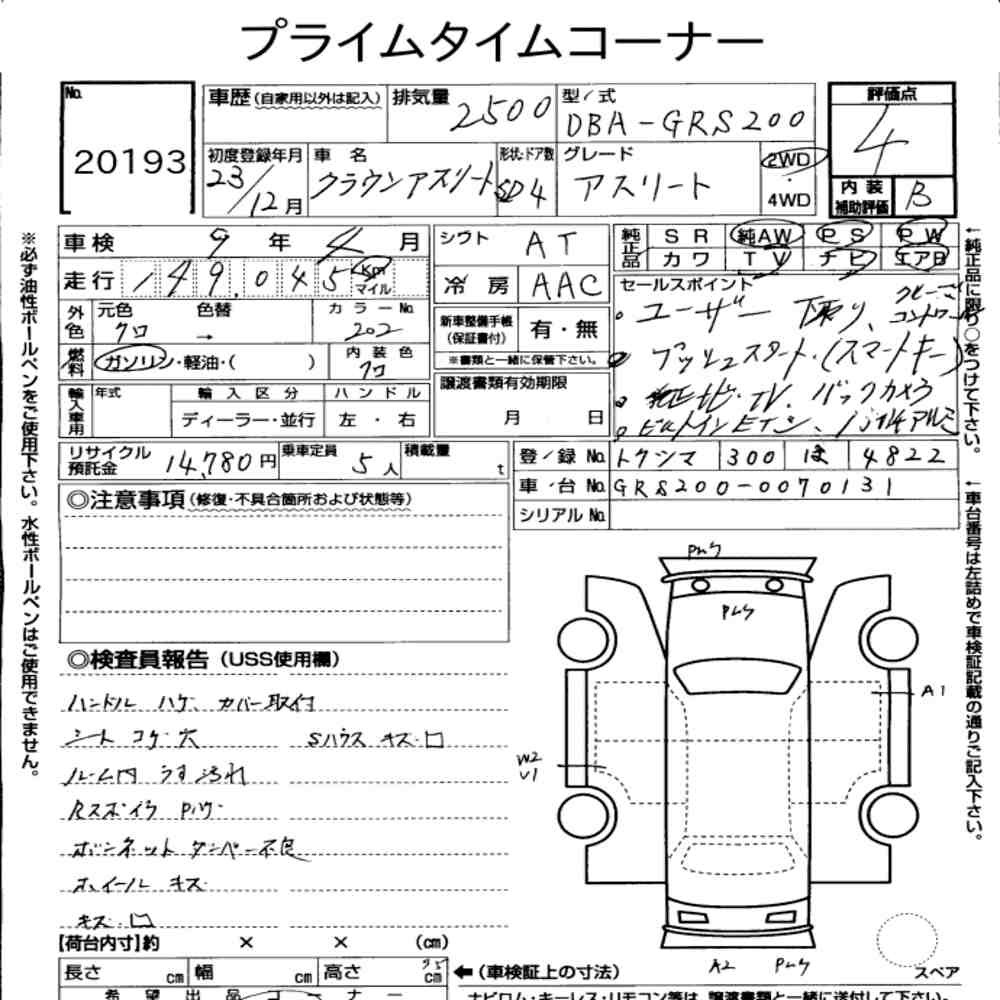 プライムタイムコーナー
No. 20193
車歴(自家用以外は記入) 排気量 2500 型/式 DBA-GRS200 評価点 4
初度登録年月 23/12月 車名 クラウンアスリート 形状・ドア数 SD4 グレード アスリート 2WD・4WD 内装補助評価 B
車検 9年4月 シフト AT 純正品 SR 純AW PS PW
走行 149,045 Km マイル 冷房 AAC カワ TV ナビ エアB
外色 元色 クロ 色替 → カラーNo. 202 新車整備手帳(保証書付) 有・無 セールスポイント
※書類と一緒に保管下さい。
燃料 ガソリン・軽油・( ) 内装色 クロ
ユーザー下取り、クルーズコントロール
プッシュスタート・(スマートキー)
純正ナビ・TV、バックカメラ
輸入車用 年式 輸入区分 ディーラー・並行 ハンドル 左・右 譲渡書類有効期限 月 日
ビルトインETC、
リサイクル預託金 14,780円 乗車定員 5人 積載量 t
登/録 No. トクシマ 300 ほ 4822
車/台 No. GRS200-0070131
シリアル No.
◎注意事項(修復・不具合箇所および状態等)
◎検査員報告(USS使用欄)
ハンドル ハゲ、カバー取付
シート コゲ・穴 Sハウス キズ・凹
ルーム内 うす汚れ
Rスポイラ Pハゲ
ボンネット ダンパー不良
ホイール キズ
キズ・凹
Pハゲ
Pハゲ
A1
W2
U1
A2 Pハゲ
スペア
【荷台内寸】約 × × (cm)
長さ cm 幅 cm 高さ cm ←(車検証上の寸法)
希望出品コーナー
ナビロム・キーレス・リモコン等は、譲渡書類と一緒に送付して下さい。
※必ず油性ボールペンをご使用下さい。水性ボールペンはご使用できません。
←純正品に限り○をつけて下さい。
←車台番号は左詰めで車検証記載の通りご記入下さい。